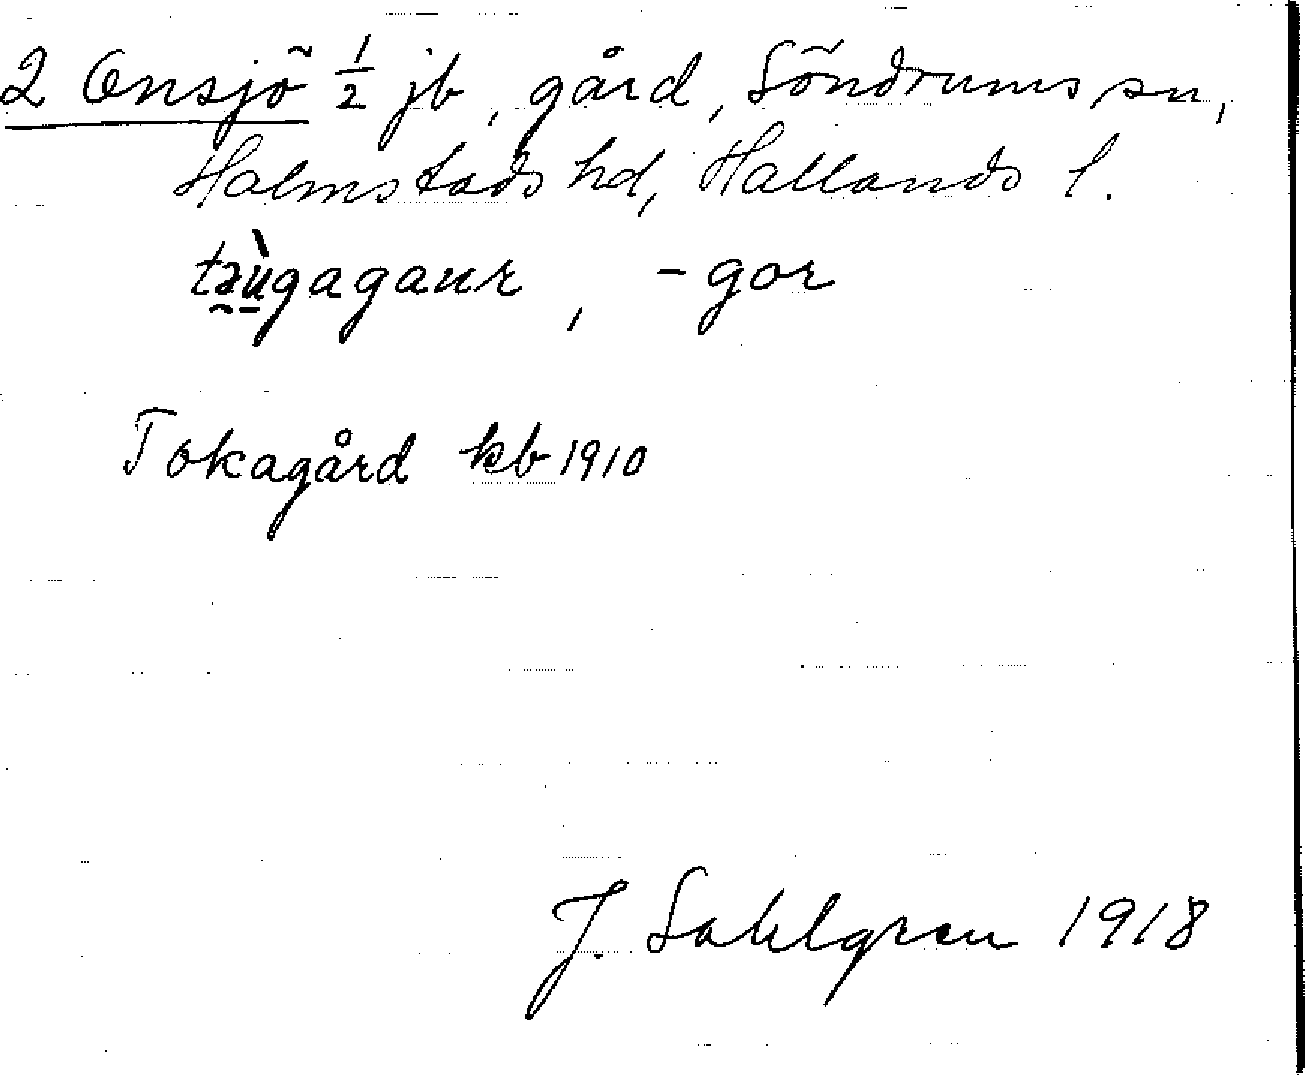 2 Onsjö 1/2 jb, gård, Söndrums sn,
Halmstads hd, Hallands l.
təùgagaur, -gor
Tokagård kb 1910
J. Sahlgren 1918